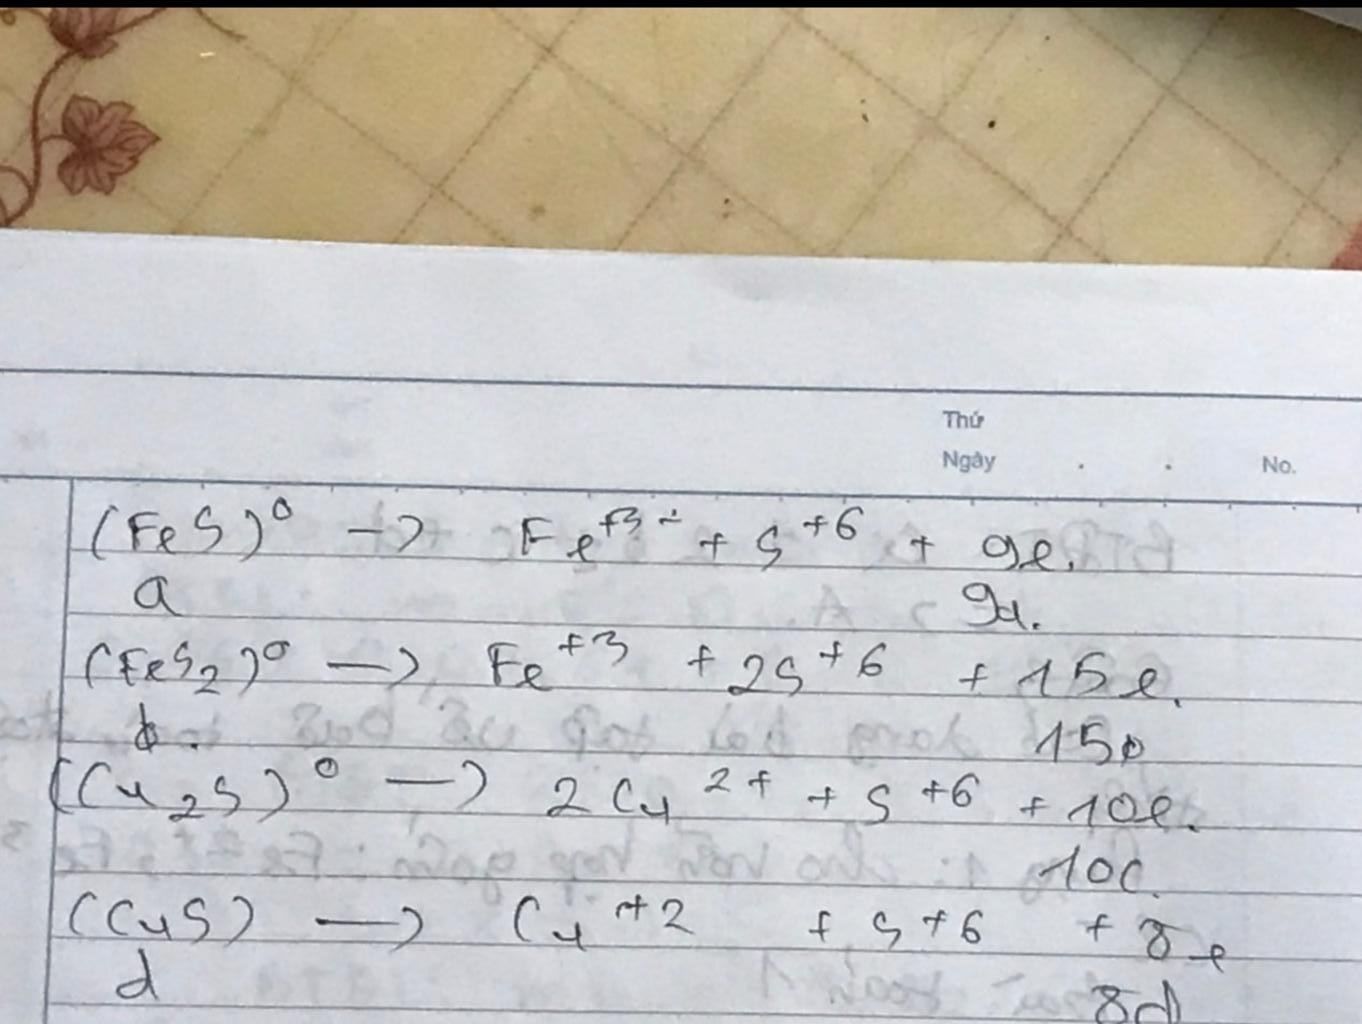 Thứ
Ngày . . No.
(FeS)⁰ → Fe⁺³ + S⁺⁶ + 9e.
a 9a.
(FeS₂)⁰ → Fe⁺³ + 2S⁺⁶ + 15e.
b. 15b
(Cu₂S)⁰ → 2Cu²⁺ + S⁺⁶ + 10e.
10c.
(CuS) → Cu⁺² + S⁺⁶ + 8e
d 8d